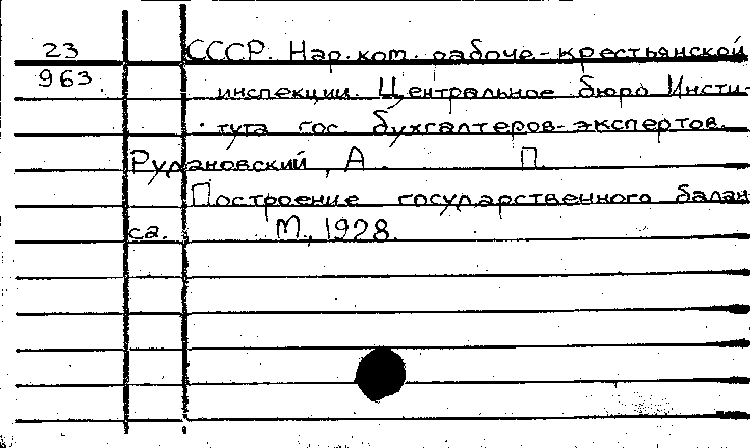 23 СССР. Нар. ком. рабоче-крестьянской
963 инспекции. Центральное бюро Инсти-
тута гос. бухгалтеров-экспертов.
Рудановский, А. П.
Построение государственного балан
са. М., 1928.